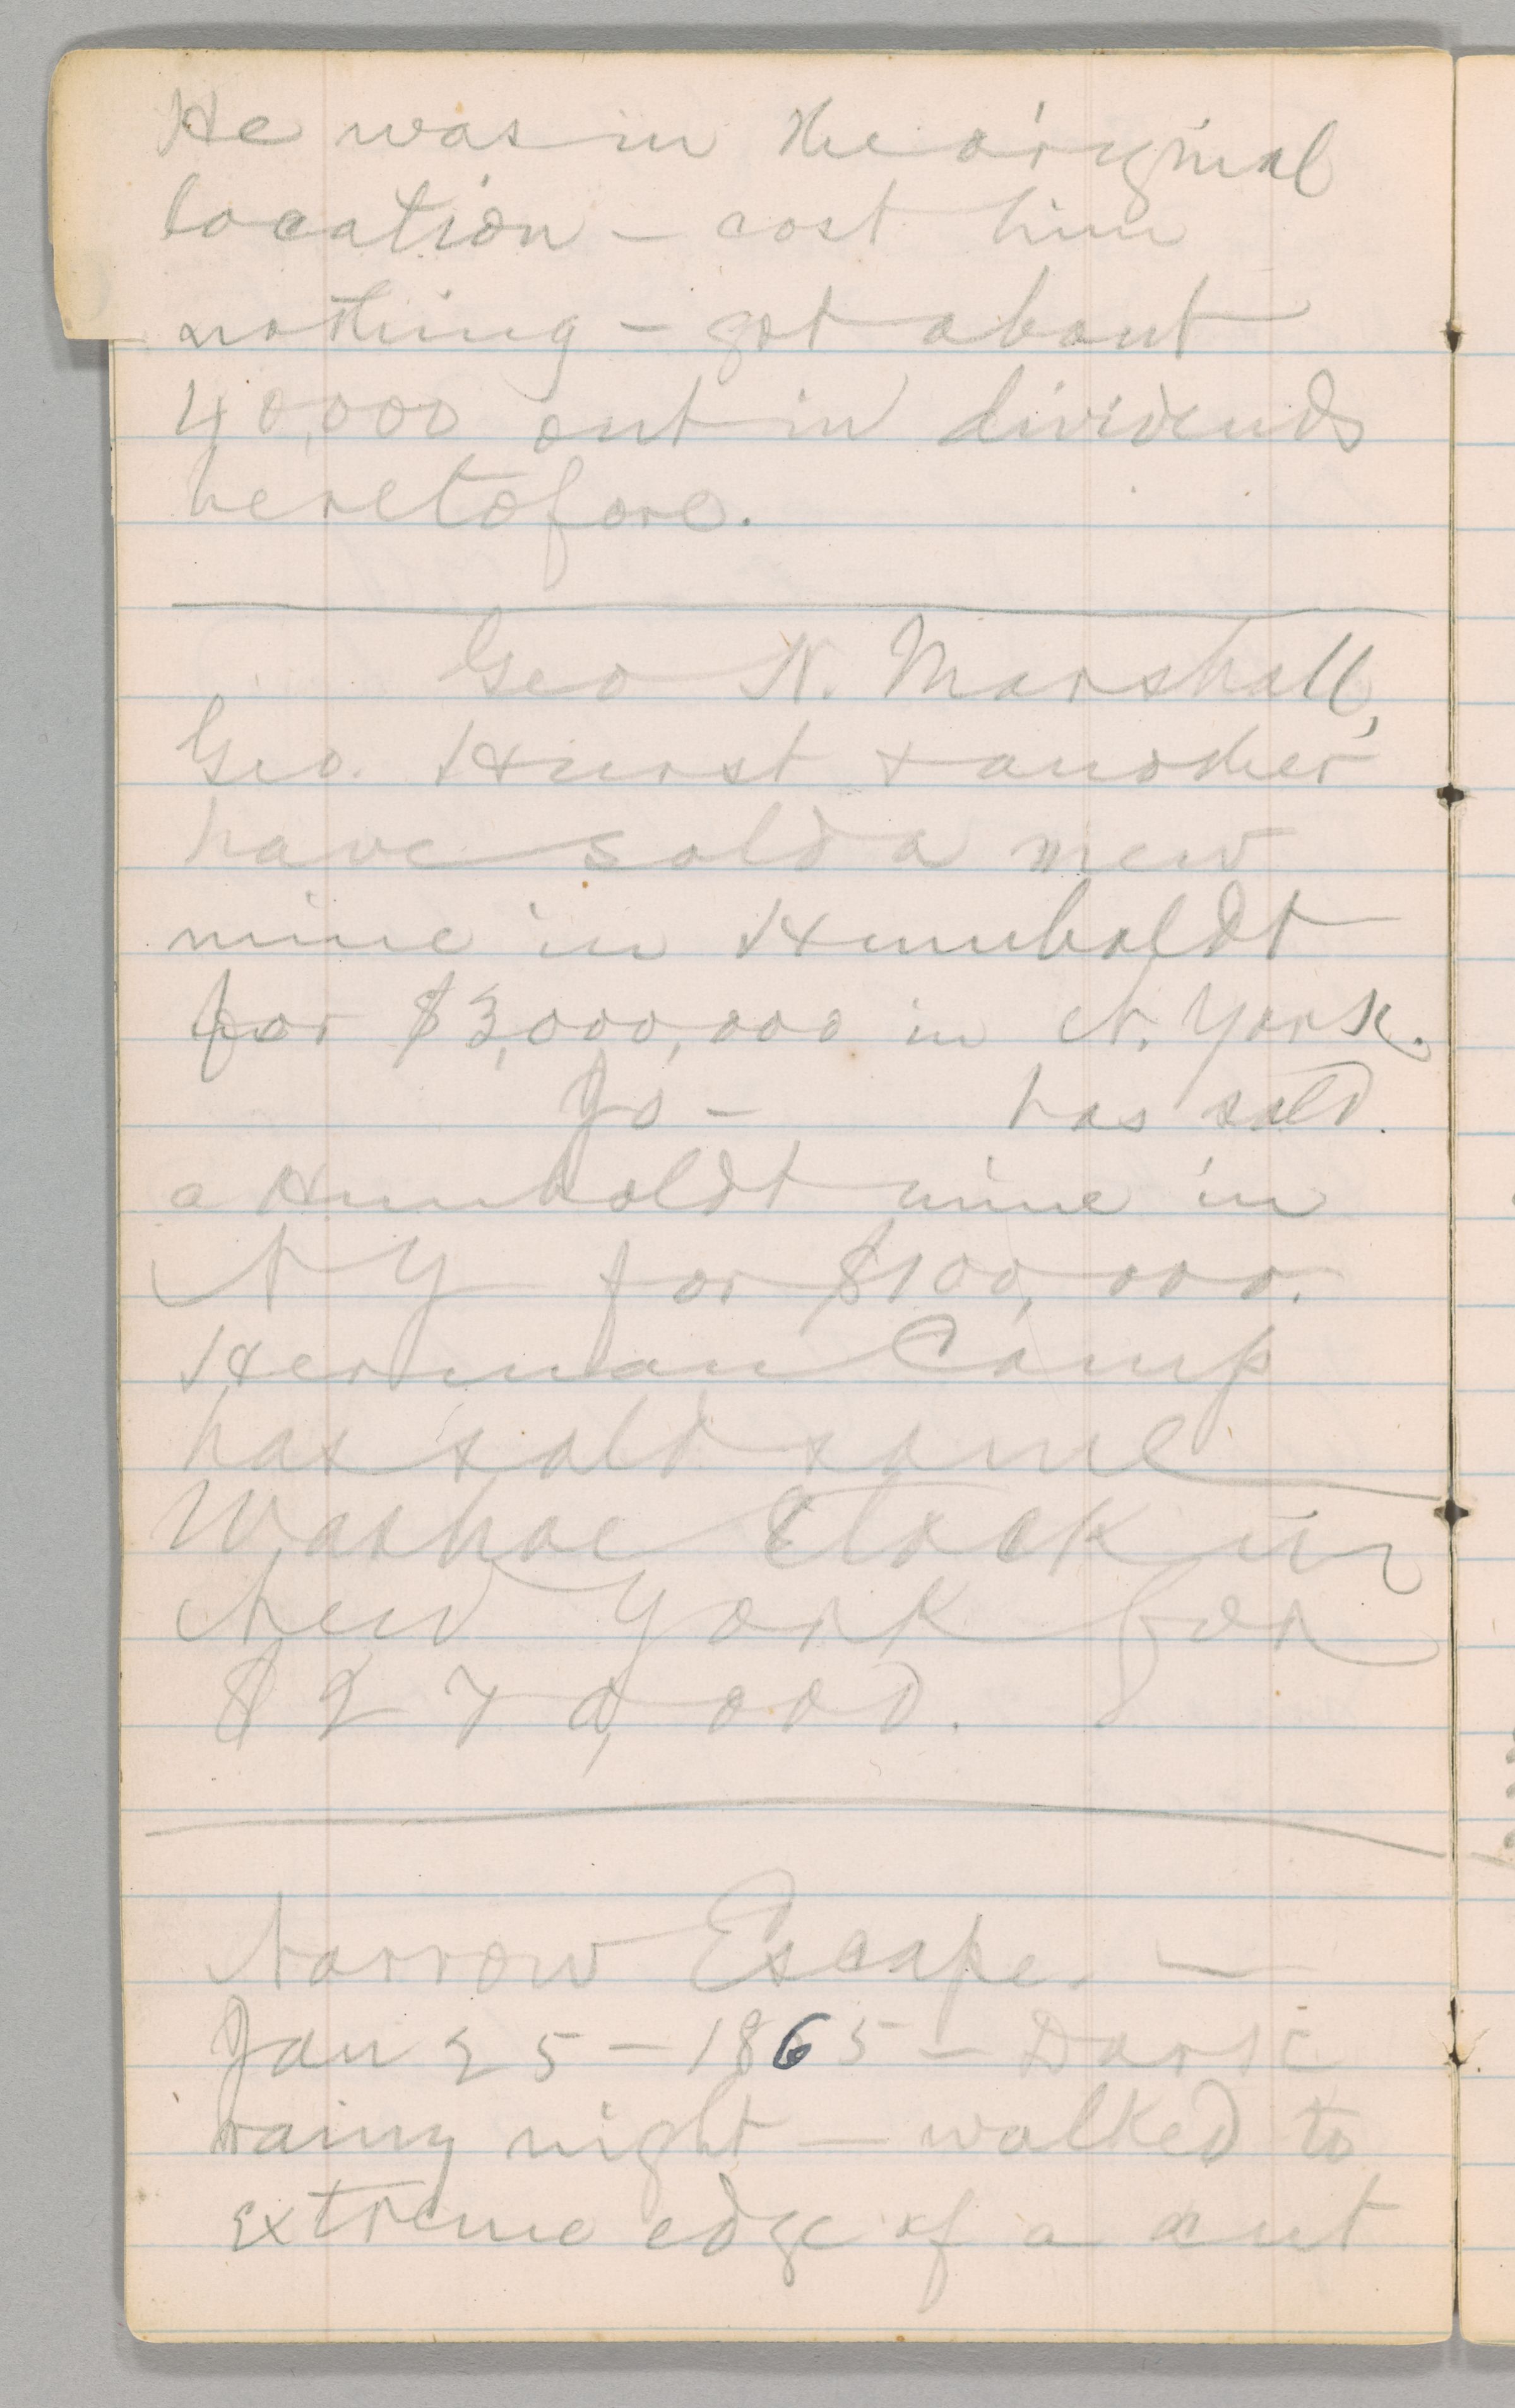 He was in the original
location – cost him
nothing – got about
40,000 out in dividends
heretofore.
Geo N. Marshall,
Geo. Hurst & another
have sold a new
mine in Humboldt
for $3,000,000 in N. York.
Jo – has sold
a Humboldt mine in
N Y for $100,000.
Herman Camp
has sold some
Washoe Stock in
New York for
$270,000.
Narrow Escape. –
Jan 25 – 1865 – Dark
rainy night – walked to
extreme edge of a cut